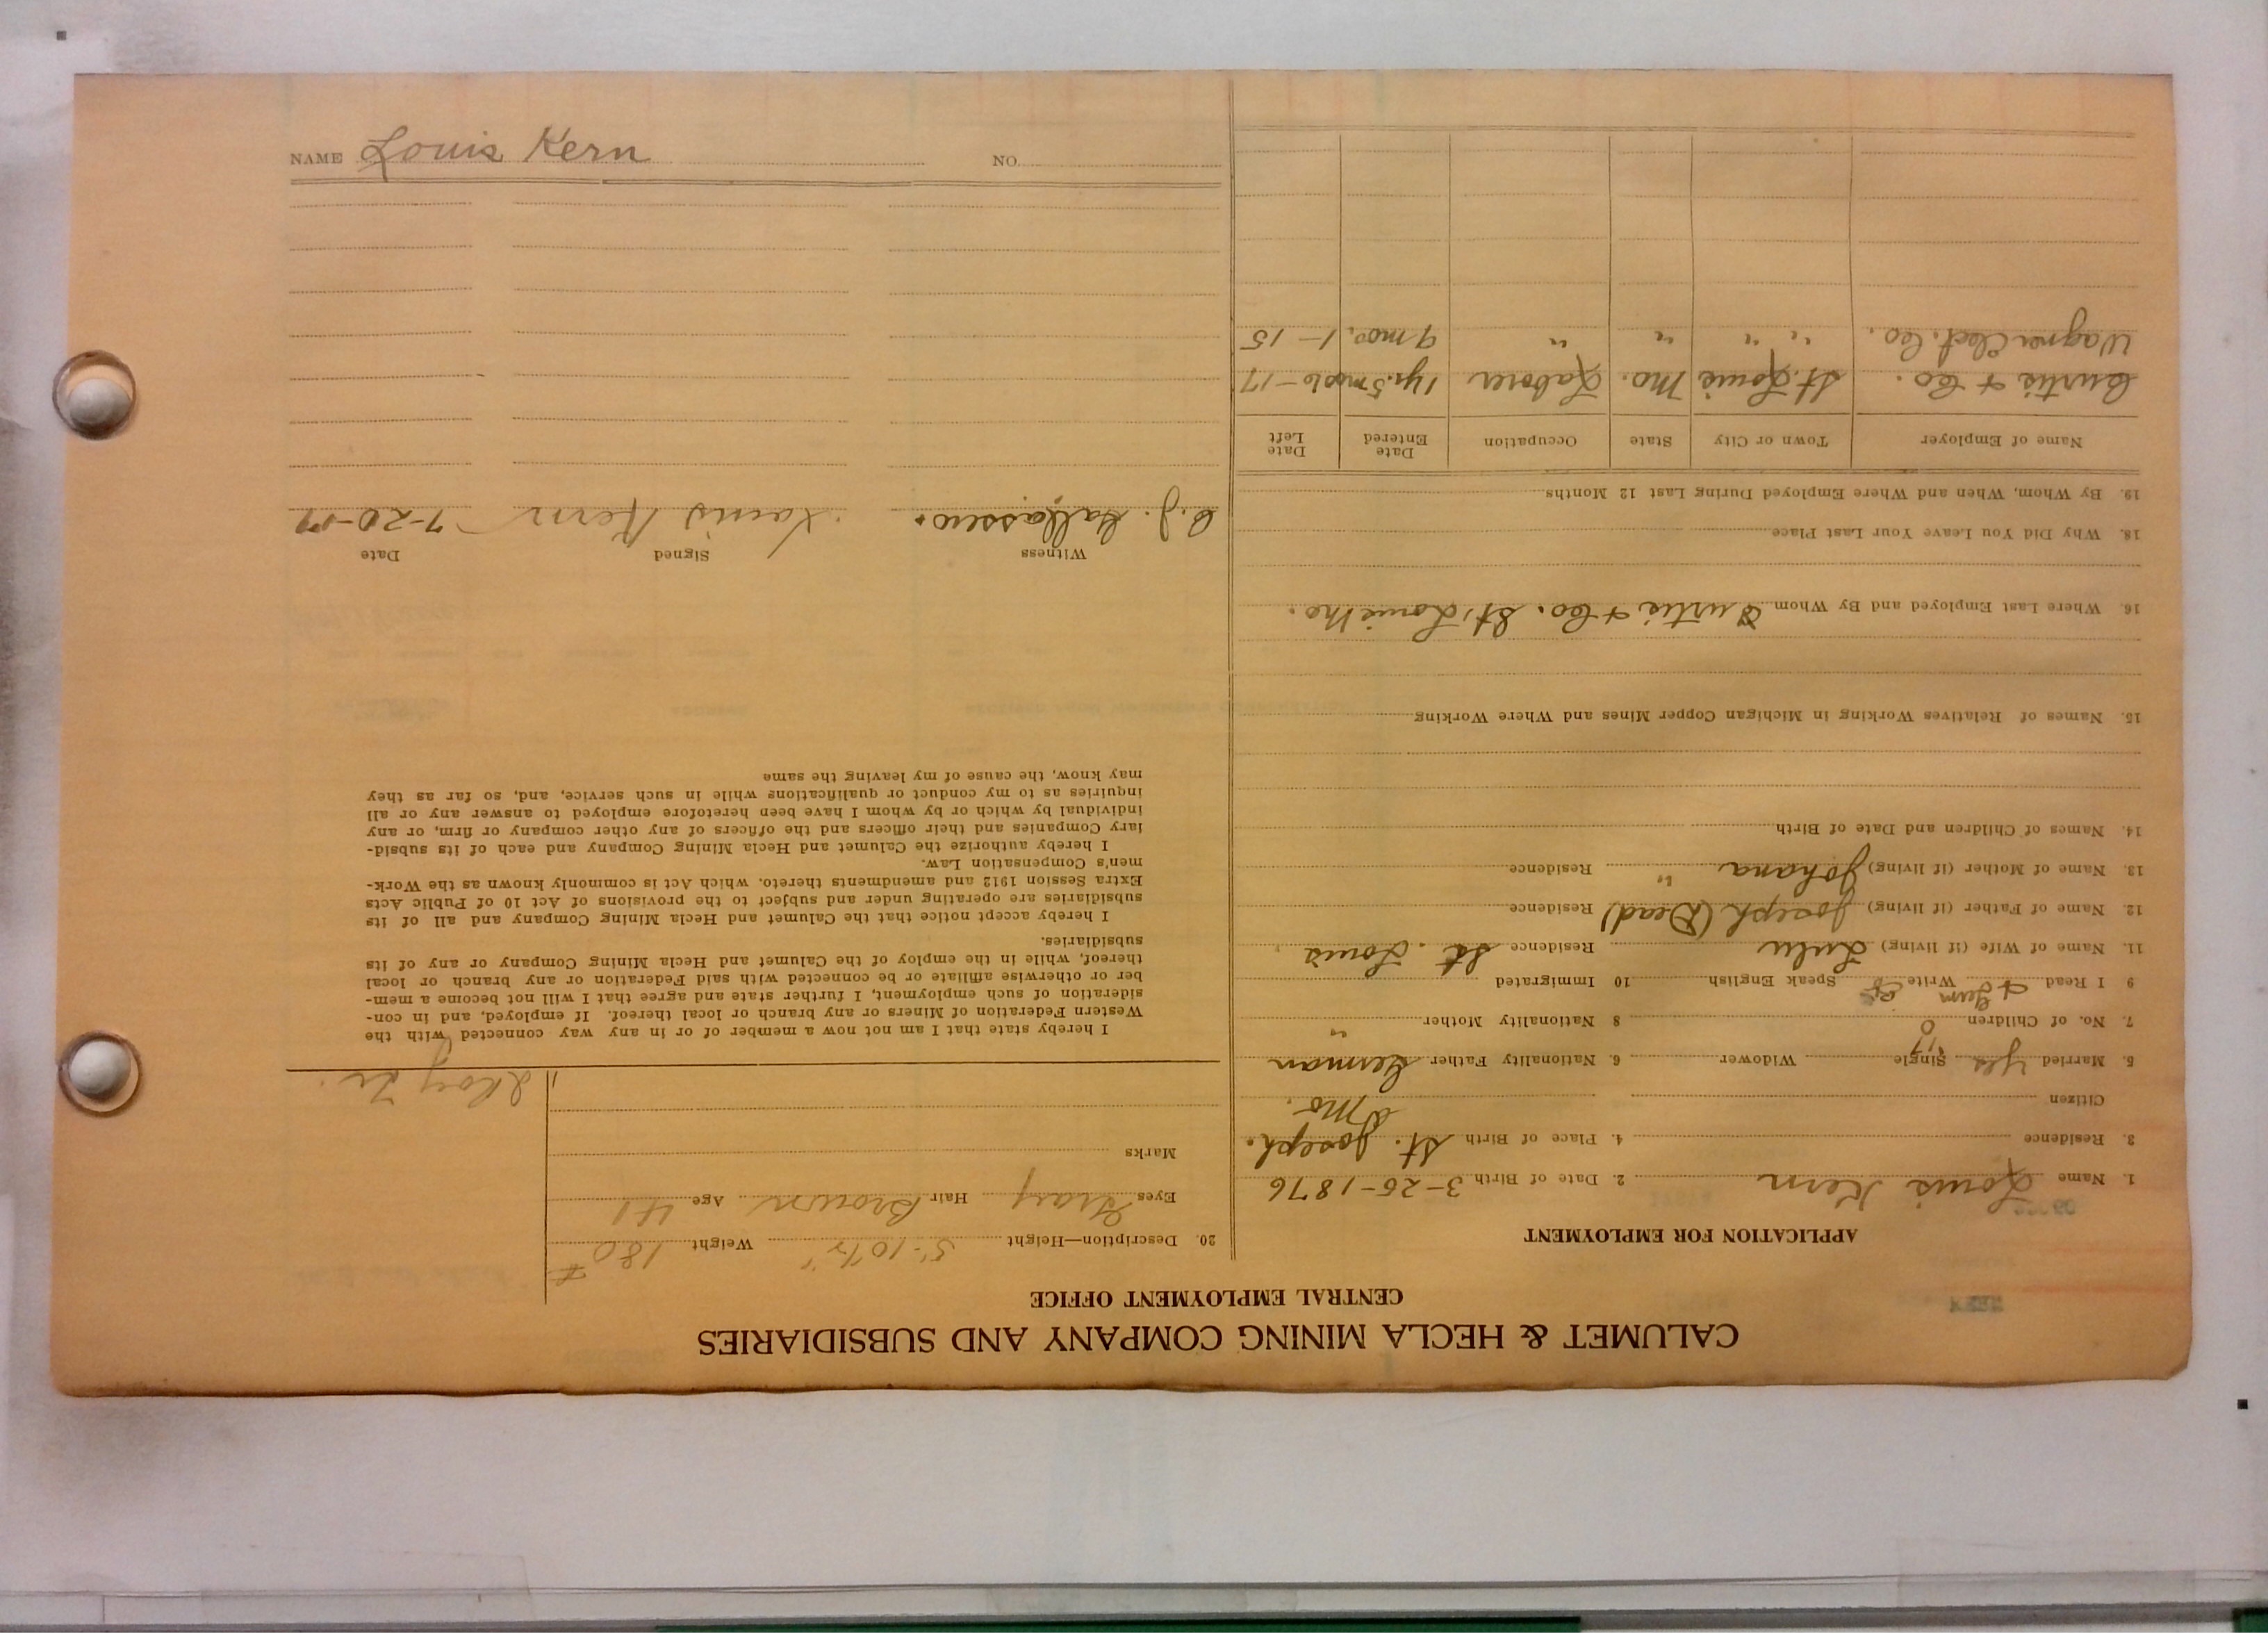 CALUMET & HECLA MINING COMPANY AND SUBSIDIARIES
CENTRAL EMPLOYMENT OFFICE
APPLICATION FOR EMPLOYMENT
1. Name Louis Kern 2. Date of Birth 3-25-1876
3. Residence 4. Place of Birth St. Joseph.
Mo.
Citizen
5. Married Yes Single Widower 6. Nationality Father German
17
7. No. of Children 0 8 Nationality Mother "
9 I Read + Germ Write Speak English 10 Immigrated
11. Name of Wife (if living) Lulu Residence St. Louis
12. Name of Father (if living) Joseph (Dead) Residence
13. Name of Mother (if living) Johana " Residence
14. Names of Children and Date of Birth
15. Names of Relatives Working in Michigan Copper Mines and Where Working
16. Where Last Employed and By Whom Curtis + Co. St. Louis Mo.
18. Why Did You Leave Your Last Place
19. By Whom, When and Where Employed During Last 12 Months
Name of Employer Town or City State Occupation Date Entered Date Left
Curtis + Co. St. Louis Mo. Laborer 1 yr. 5 mos 6-17
Wagner Elect. Co. " " " " 9 mos. 1-15
20. Description—Height 5'-10½" Weight 180 #
Eyes Gray Hair Brown Age 41
Marks
I hereby state that I am not now a member of or in any way connected with the
Western Federation of Miners or any branch or local thereof. If employed, and in con-
sideration of such employment, I further state and agree that I will not become a mem-
ber or otherwise affiliate or be connected with said Federation or any branch or local
thereof, while in the employ of the Calumet and Hecla Mining Company or any of its
subsidiaries.
I hereby accept notice that the Calumet and Hecla Mining Company and all of its
subsidiaries are operating under and subject to the provisions of Act 10 of Public Acts
Extra Session 1912 and amendments thereto. which Act is commonly known as the Work-
men's Compensation Law.
I hereby authorize the Calumet and Hecla Mining Company and each of its subsid-
iary Companies and their officers and the officers of any other company or firm, or any
individual by which or by whom I have been heretofore employed to answer any or all
inquiries as to my conduct or qualifications while in such service, and, so far as they
may know, the cause of my leaving the same
Witness Signed Date
Louis Kern 7-20-17
NAME Louis Kern NO.